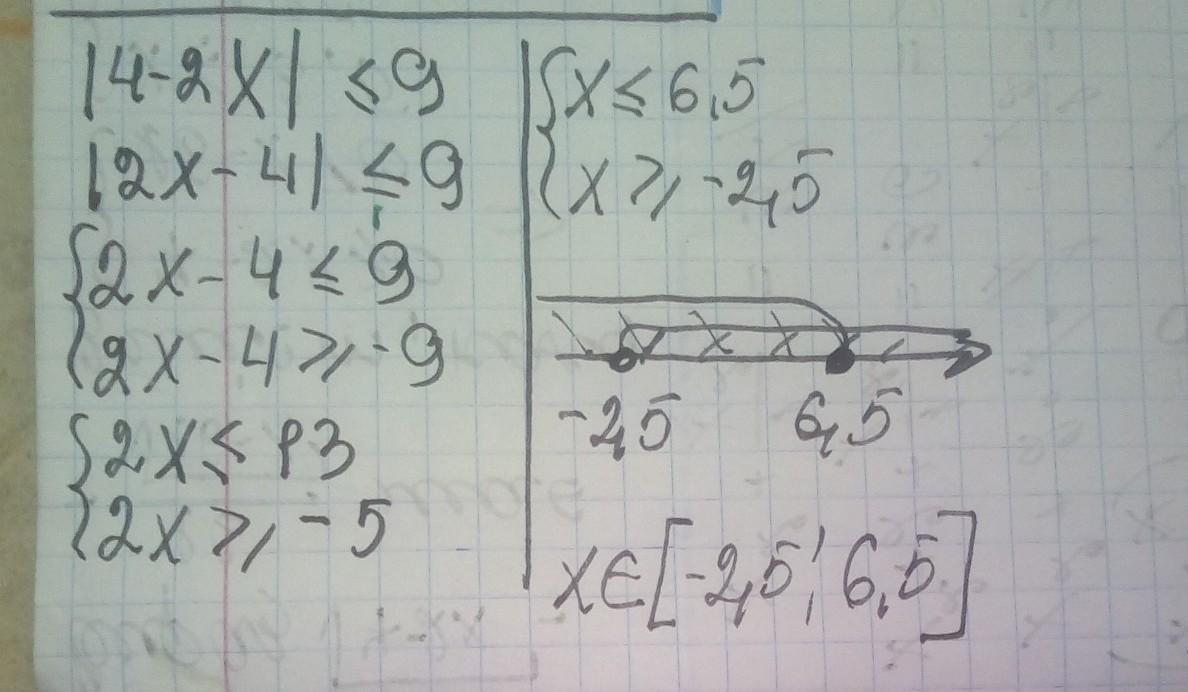 |4-2X| ≤ 9
|2X-4| ≤ 9
{2X-4 ≤ 9
{2X-4 ≥ -9
{2X ≤ 13
{2X ≥ -5
{X ≤ 6,5
{X ≥ -2,5
-2,5 6,5
X∈[-2,5; 6,5]